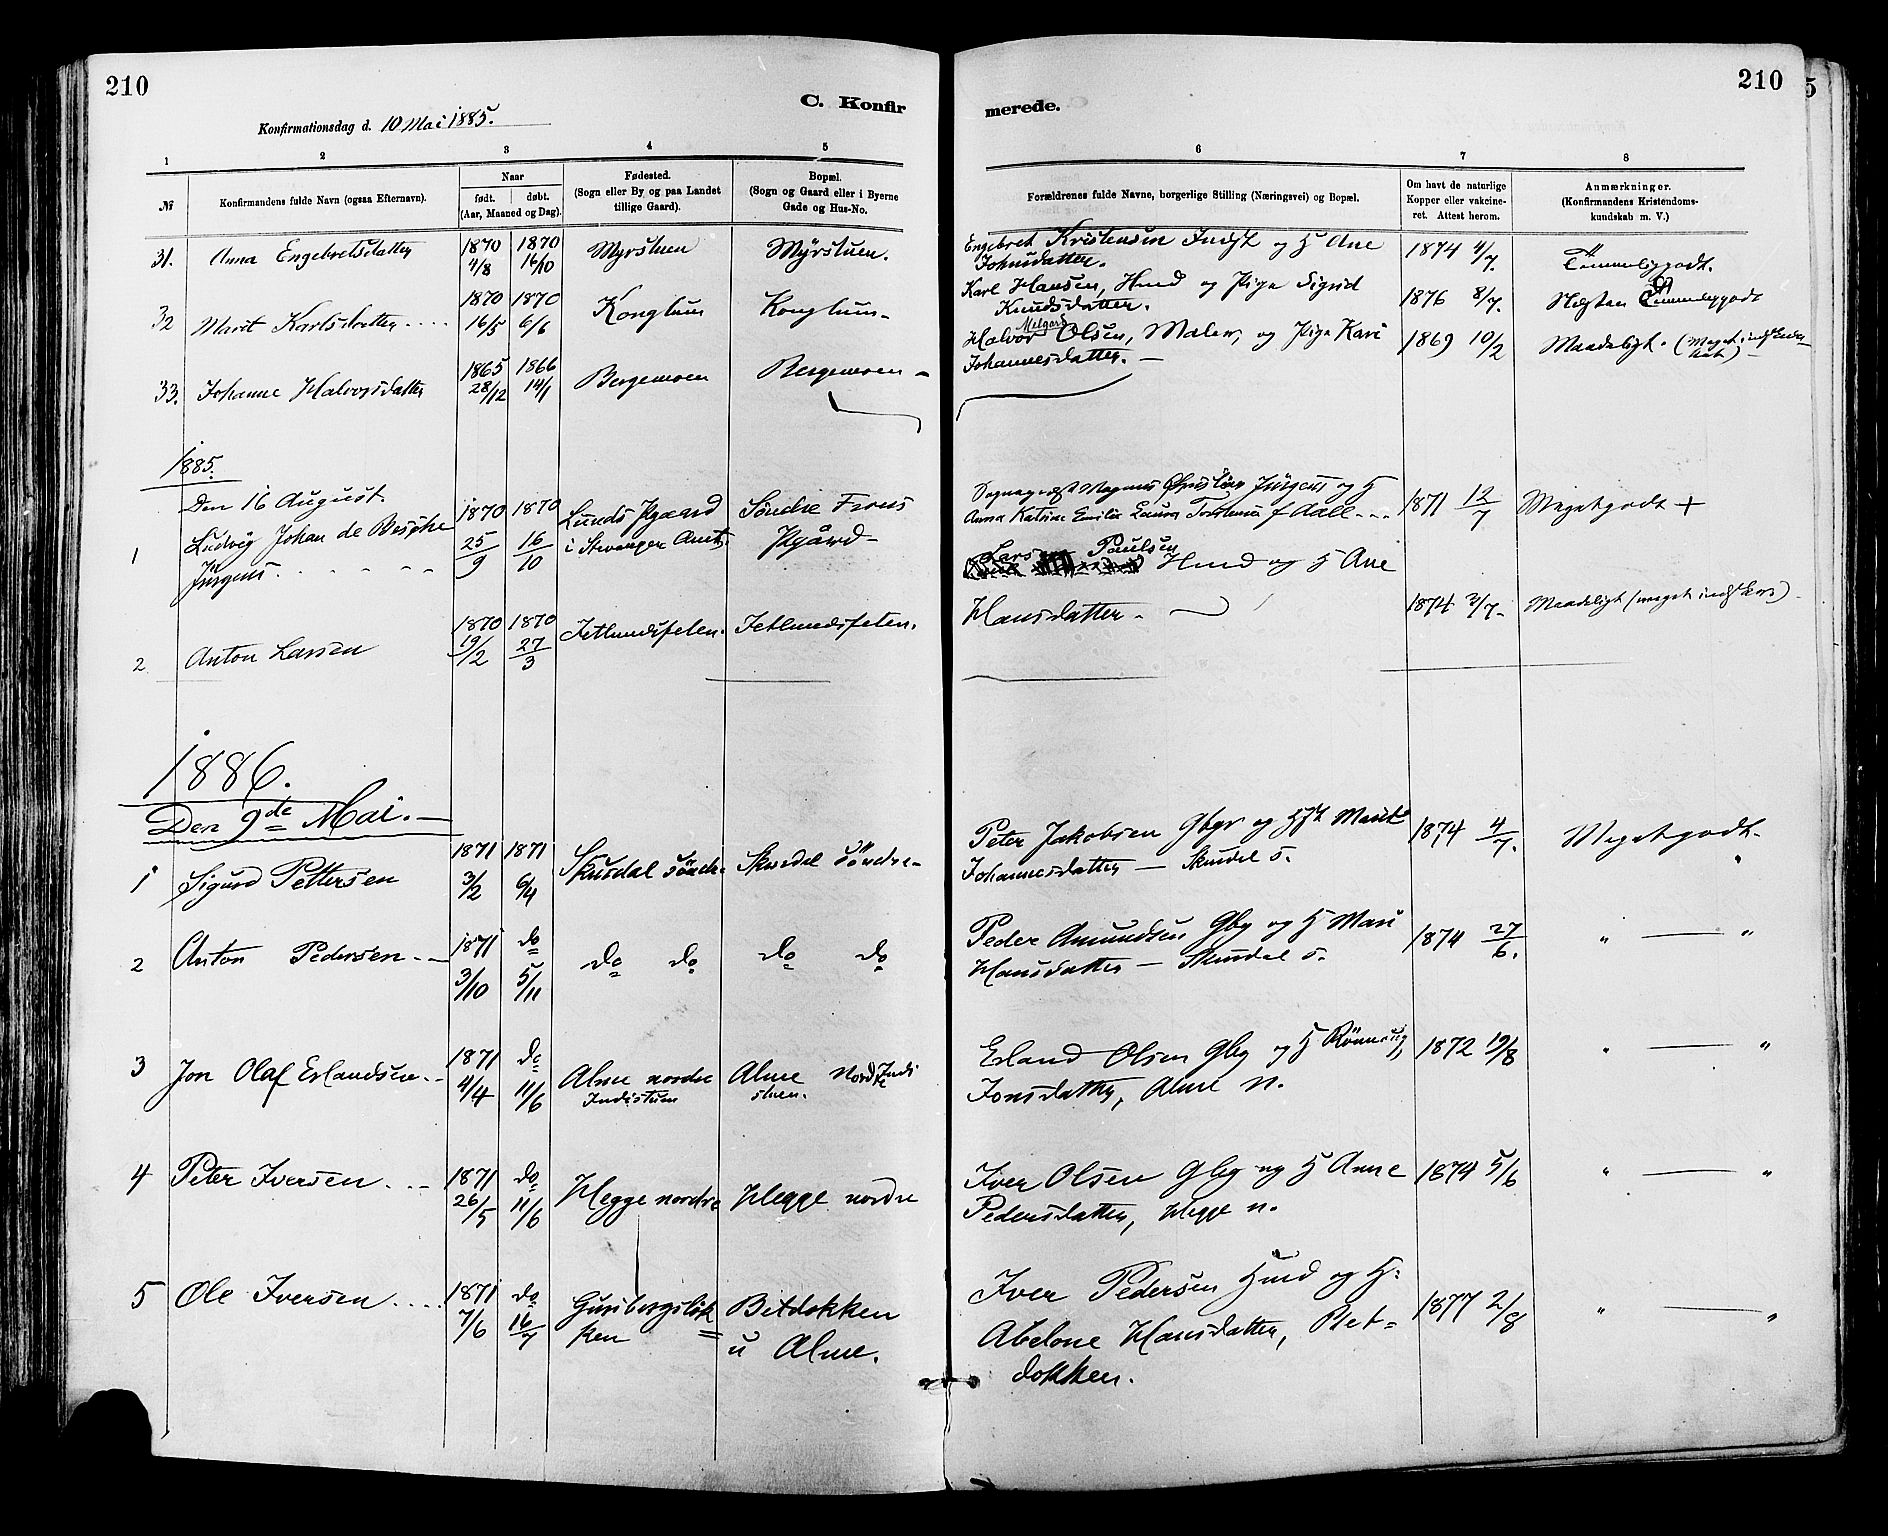 210
C. Konfir
Konfirmationsdag d. 10 Mai 1885.
1 2 3 4 5
№ Konfirmandens fulde Navn (ogsaa Efternavn).
Naar
født. døbt.
(Aar, Maaned og Dag).
Fødested.
(Sogn eller By og paa Landet
tillige Gaard).
Bopæl.
(Sogn og Gaard eller i Byerne
Gade og Hus-No.
31. Anna Engebretsdatter 1870 4/8 1870 16/10 Myrstuen Myrstuen.
32 Marit Karlsdatter .... 1870 16/5 1870 6/6 Konglum Konglum
33. Johanne Halvorsdatter 1865 28/12 1866 14/1 Bergemoen Bergemoen
1885.
Den 16 August.
1 Ludvig Johan de Besche
Jürgens. 1870 25/9 1870 16/10 Lunds Pgaard
i Stavanger Amt. Søndre Frons
Pgård
2 Anton Larsen 1870 19/2 1870 27/3 Jetlundsfeten. Jetlundsfeten.
1886.
Den 9de Mai.
1 Sigurd Pettersen 1871 3/2 1871 6/4 Skurdal söndre Skurdal söndre
2 Anton Pedersen 1871 3/10 do 5/11 do do do do
3 Jon Olaf Erlandsen 1871 4/4 do 11/6 Alme nordre
Indistuen Alme nordre Indi
stuen.
4 Peter Iversen 1871 26/5 do 11/6 Hegge nordre Hegge nordre
5 Ole Iversen .... 1871 7/6 do 16/7 Guribergsløk
ken Betdokken
u Alme.
210
merede.
6 7 8
Forældrenes fulde Navne, borgerlige Stilling (Næringsvei) og Bopæl.
Om havt de naturlige
Kopper eller vakcine-
ret. Attest herom.
Anmærkninger.
(Konfirmandens Kristendoms-
kundskab m. V.)
Engebret Kristensen Indst og H Ane
Johnsdatter. 1874 4/7. Temmeliggodt.
Karl Hansen, Hmd og Pige Sigrid
Knudsdatter. 1876 8/7. Næsten Temmeliggodt
Halvor Olsen, Maler, og Pige Kari
Johannesdatter. 1869 10/2 Maadeligt.
Sognepræst Magnus Jürgens og H
Anna Katrine Emilie Laura f Aall 1871 12/7 Megetgodt +
Lars Paulsen Hmd og H Ane
Hansdatter. 1874 3/7. Maadeligt
Peter Jakobsen Gbgr og Marit
Johannesdatter — Skurdal s. 1874 4/7. Megetgodt.
Peder Amundsen Gbg og H Mari
Hansdatter — Skurdal s. 1874 27/6. " — "
Erland Olsen Gbg og H Rönnaug
Jonsdatter, Alme n. 1872 19/8 " — "
Iver Olsen Gbg og H Anne
Pedersdatter, Hegge n. 1874 5/6 " — "
Iver Pedersen Hmd og H:
Abelone Hansdatter, Bet-
dokken. 1877 2/8 " — "